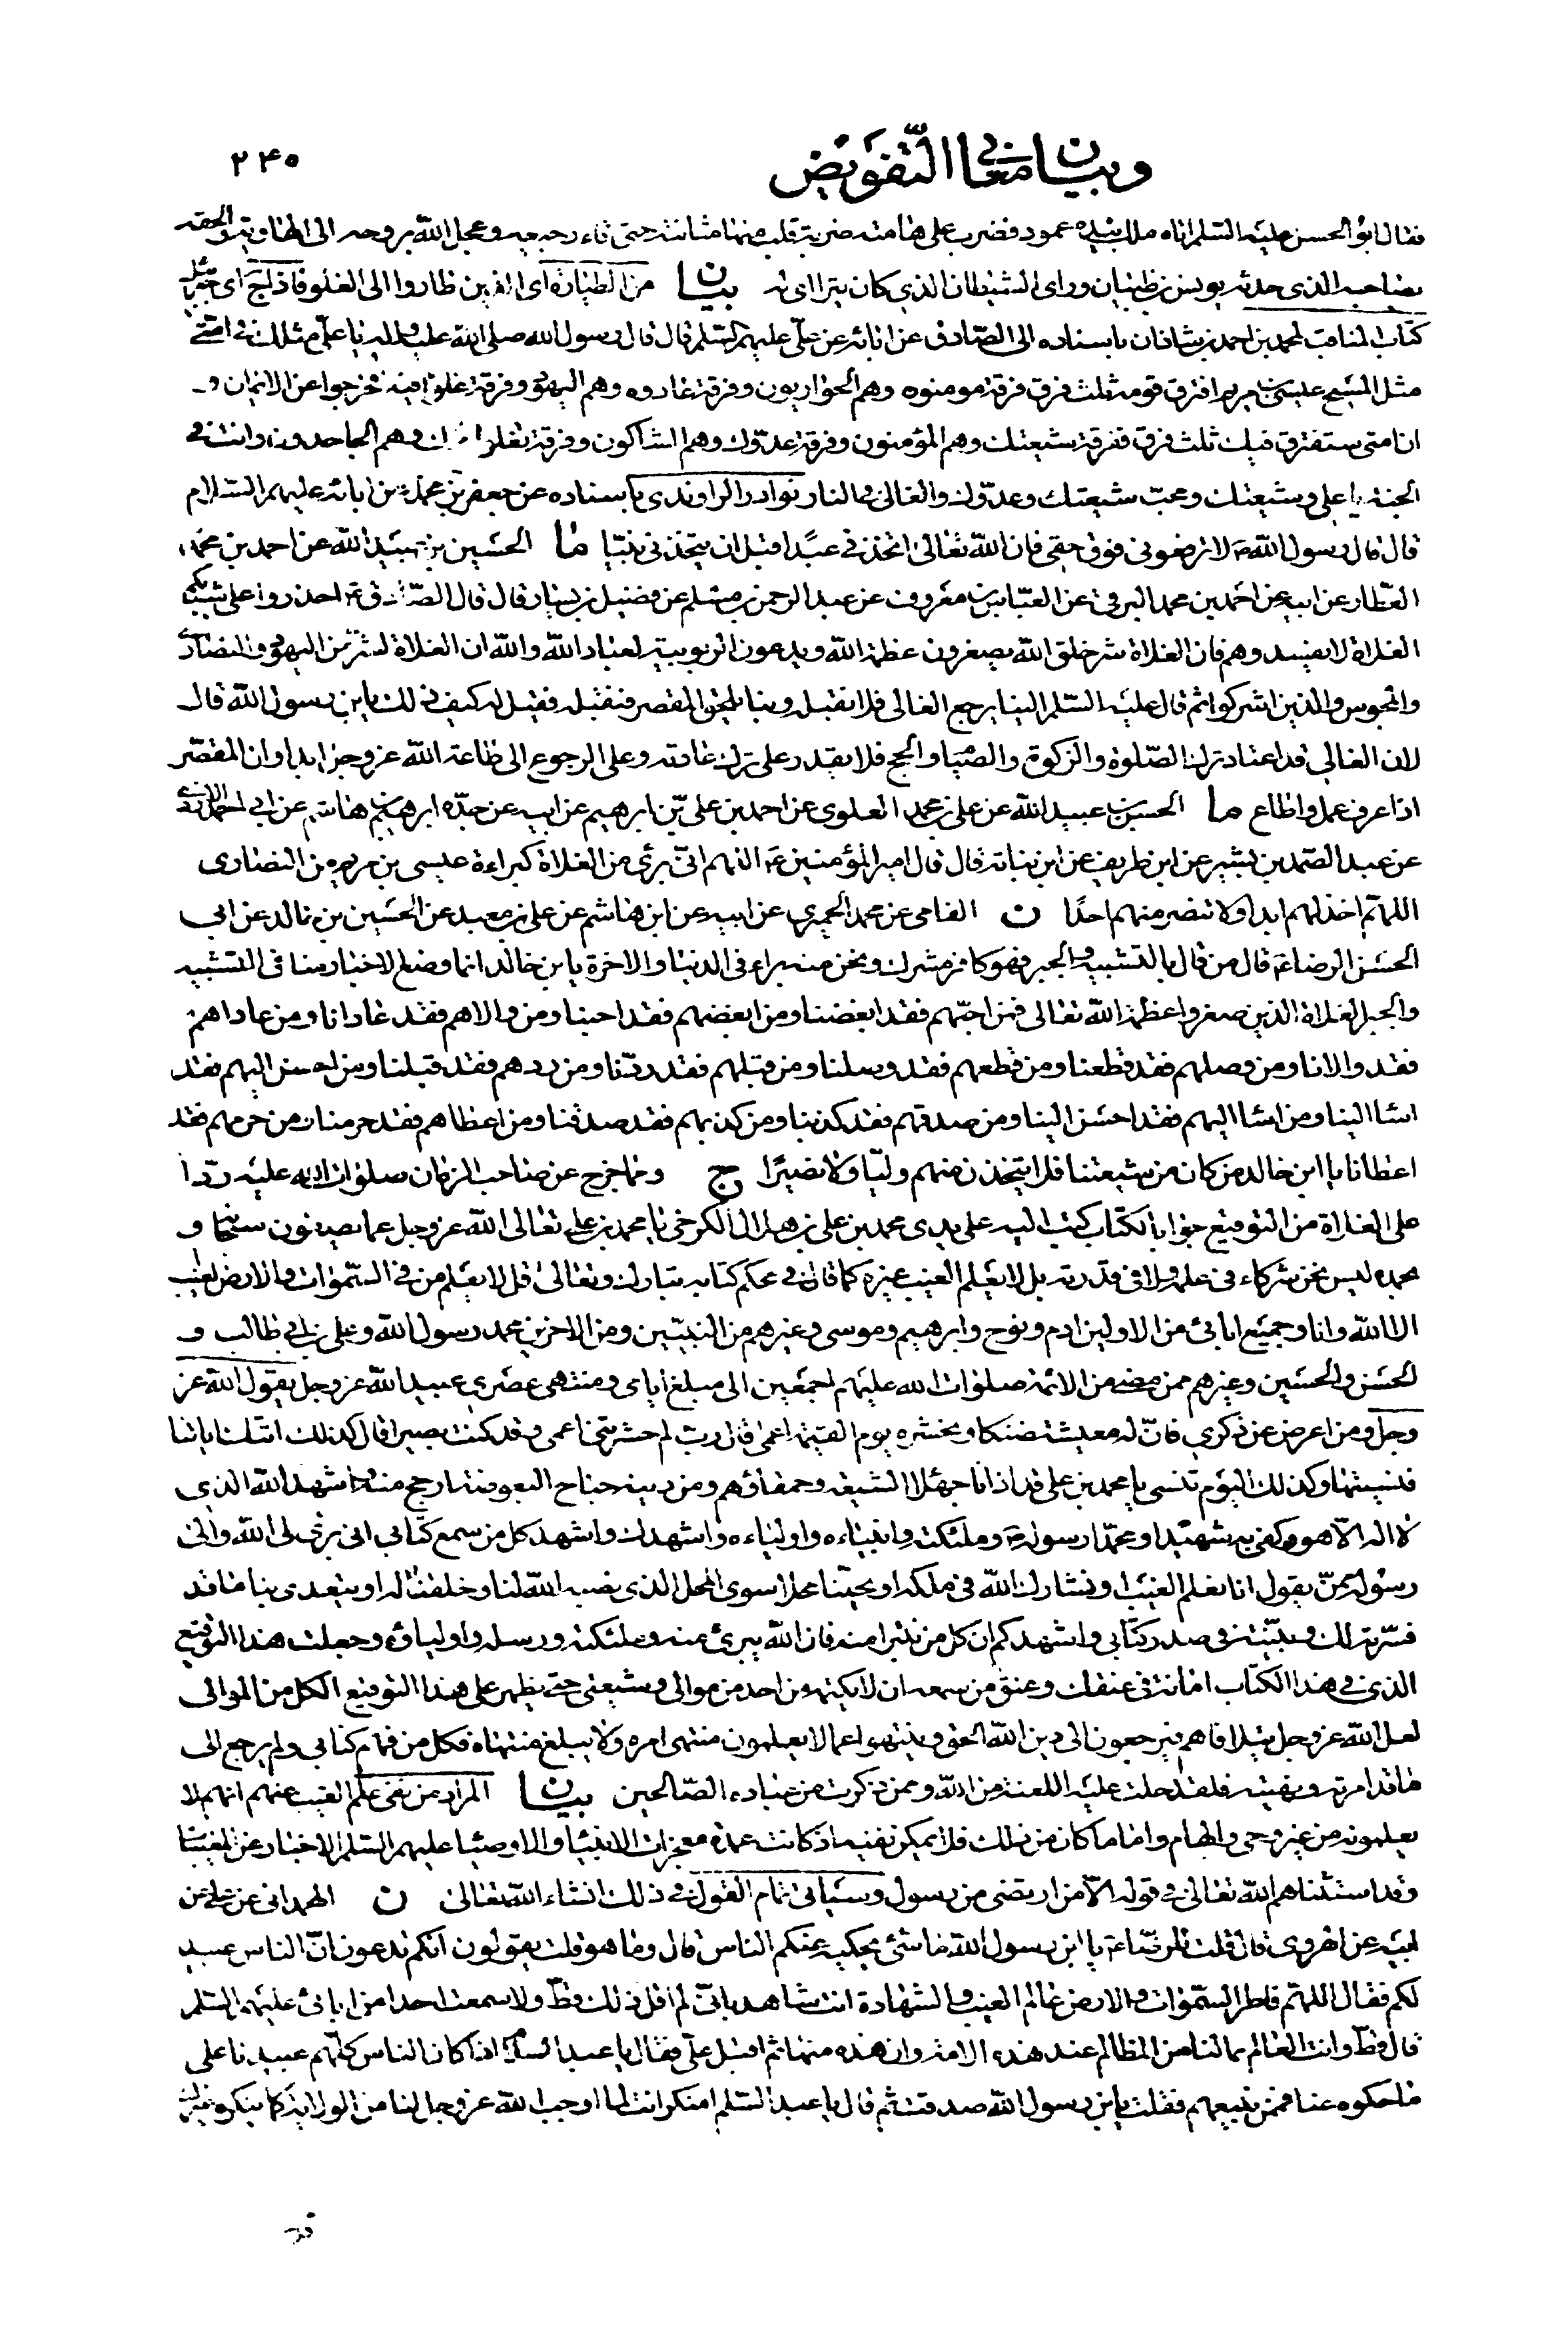 وبيان معاني التفويض
٢٤٥
فقال ابو الحسن عليه السلم اتاه ملك بيده عمود فضرب على هامته ضربة قلب منها مثانته حتى قاء رجيعه وعجل الله بروحه الى الهاوية والحقه
بصاحبه الذى حدثه يونس بن ظبيان وراى الشيطان الذي كان يترااى له بيان من الطيارة اى الذين طاروا الى الغلو فاذلج اى
كتاب المناقب لمحمد بن احمد بن شاذان باسناده الى الصادق عن ابائه عن علي عليهم السلم قال قال رسول الله صلى الله عليه واله يا علي مثلك في امتي
مثل المسيح عيسى بن مريم افترق قومه ثلث فرق فرقة مومنوه وهم الحواريون وفرقة عادوه وهم اليهود وفرقة غلوا فيه فخرجوا عن الايمان و
ان امتى ستفترق فيك ثلث فرق ففرقة شيعتك وهم المؤمنون وفرقة عدوك وهم الشاكون وفرقة تغلو وهم الجاحدون وانت في
الجنة يا علي وشيعتك ومحب شيعتك وعدوك والغالى في النار نوادر الراوندى باسناده عن جعفر بن محمد عن ابائه عليهم السلام
قال قال رسول الله ص لا ترفعونى فوق حقى فان الله تعالى اتخذنى عبدا قبل ان يتخذنى نبيا ما الحسين بن عبيد الله عن احمد بن محمد
العطار عن ابيه عن احمد بن محمد البرقي عن العباس بن معروف عن عبد الرحمن بن مسلم عن فضيل بن يسار قال قال الصادق ع احذروا على شبابكم
الغلاة لا يفسدوهم فان الغلاة شر خلق الله يصغرون عظمة الله ويدعون الربوبية لعباد الله والله ان الغلاة لشر من اليهود والنصارى
والمجوس والذين اشركوا ثم قال عليه السلم الينا يرجع الغالى فلا نقبله وبنا يلحق المقصر فنقبله فقيل له كيف ذلك يا بن رسول الله قال
لان الغالي قد اعتاد ترك الصلوة والزكوة والصيام والحج فلا يقدر على ترك عادته وعلى الرجوع الى طاعة الله عز وجل ابدا وان المقصر
اذا عرف عمل واطاع ما الحسين بن عبيد الله عن على بن محمد العلوى عن احمد بن على بن ابرهيم عن ابيه عن جده ابرهيم بن هاشم عن ابي احمد الازدى
عن عبد الصمد بن بشير عن ابن طريف عن ابن نباتة قال قال امير المؤمنين ع اللهم انى برئ من الغلاة كبراءة عيسى بن مريم من النصارى
اللهم اخذلهم ابدا ولا تنصر منهم احدا ن الفامى عن محمد الحميري عن ابيه عن ابن هاشم عن على بن معبد عن الحسين بن خالد عن ابي
الحسن الرضا ع قال من قال بالتشبيه والجبر فهو كافر مشرك ونحن منه براء فى الدنيا والاخرة يا بن خالد انما وضع الاخبار عنا فى التشبيه
والجبر الغلاة الذين صغروا عظمة الله تعالى فمن احبهم فقد ابغضنا ومن ابغضهم فقد احبنا ومن والاهم فقد عادانا ومن عاداهم
فقد والانا ومن وصلهم فقد قطعنا ومن قطعهم فقد وصلنا ومن جفاهم فقد برنا ومن برهم فقد جفانا ومن اكرمهم فقد اهاننا
اساء الينا ومن اساء اليهم فقد احسن الينا ومن صدقهم فقد كذبنا ومن كذبهم فقد صدقنا ومن اعطاهم فقد حرمنا ومن حرمهم فقد
اعطانا يا ابن خالد من كان من شيعتنا فلا يتخذن منهم وليا ولا نصيرا ج ومما خرج عن صاحب الزمان صلوات الله عليه ردا
على الغلاة من التوقيع جوابا لكتاب كتب اليه على يدى محمد بن على بن هلال الكرخى يا محمد بن على تعالى الله عز وجل عما يصفون سبحانه و
بحمده ليس نحن شركاء فى علمه ولا فى قدرته بل لا يعلم الغيب غيره كما قال فى محكم كتابه تبارك وتعالى قل لا يعلم من في السموات والارض الغيب
الا الله وانا وجميع ابائى من الاولين ادم ونوح وابرهيم وموسى وغيرهم من النبيين ومن الاخرين محمد رسول الله وعلى بن ابي طالب و
الحسن والحسين وغيرهم ممن مضى من الائمة صلوات الله عليهم اجمعين الى مبلغ ايامى ومنتهى عصرى عبيد الله عز وجل يقول الله عز
وجل ومن اعرض عن ذكري فان له معيشة ضنكا ونحشره يوم القيمة اعمى قال رب لم حشرتنى اعمى وقد كنت بصيرا قال كذلك اتتك اياتنا
فنسيتها وكذلك اليوم تنسى يا محمد بن على قد اذانا جهلاء الشيعة وحمقاؤهم ومن دينه جناح البعوضة ارجح منه واشهد الله الذى
لا اله الا هو وكفى به شهيدا ومحمدا رسوله ص وملئكته وانبياءه واولياءه واشهدك واشهد كل من سمع كتابي انى برئ الى الله والى
رسوله ممن يقول انا نعلم الغيب او نشارك الله فى ملكه او يحلنا محلا سوى المحل الذى نصبه الله لنا وخلقنا له او يتعدى بنا ما قد
فسرته لك وبينته فى صدر كتابي واشهدكم ان كل من نتبرأ منه فان الله يبرئ منه وملئكته ورسله واولياؤه وجعلت هذا التوقيع
الذى في هذا الكتاب امانة فى عنقك وعنق من سمعه ان لا يكتمه من احد من موالي وشيعتى حتى يظهر على هذا التوقيع الكل من الموالى
لعل الله عز وجل يتلافاهم فيرجعون الى دين الله الحق وينتهوا عما لا يعلمون منتهى امره ولا يبلغ منتهاه فكل من فهم كتابي ولم يرجع الى
ما قد امرته ونهيته فلقد حلت عليه اللعنة من الله وممن ذكرت من عباده الصالحين بيان المراد من نفى علم الغيب عنهم انهم لا
يعلمونه من غير وحى والهام واما ما كان من ذلك فلا يمكن نفيه اذ كانت عمدة معجزات الانبياء والاوصياء عليهم السلم الاخبار عن المغيبات
وقد استثناهم الله تعالى فى قوله الا من ارتضى من رسول وسياتى تمام القول في ذلك انشاء الله تعالى ن الهمدانى عن على عن
ابيه عن الهروى قال قلت للرضا ع يا ابن رسول الله ما شئ يحكيه عنكم الناس قال وما هو قلت يقولون انكم تدعون ان الناس عبيد
لكم فقال اللهم فاطر السموات والارض عالم الغيب والشهادة انت شاهد بانى لم اقل ذلك قط ولا سمعت احدا من ابائى عليهم السلم
قال قط وانت العالم بما لنا من المظالم عند هذه الامة وان هذه منها ثم اقبل على فقال يا عبد السلام اذا كان الناس كلهم عبيدنا على
ما حكوه عنا فممن نبيعهم فقلت يا بن رسول الله صدقت ثم قال يا عبد السلم امنكر انت لما اوجب الله عز وجل لنا من الولاية كما ينكره غيرك